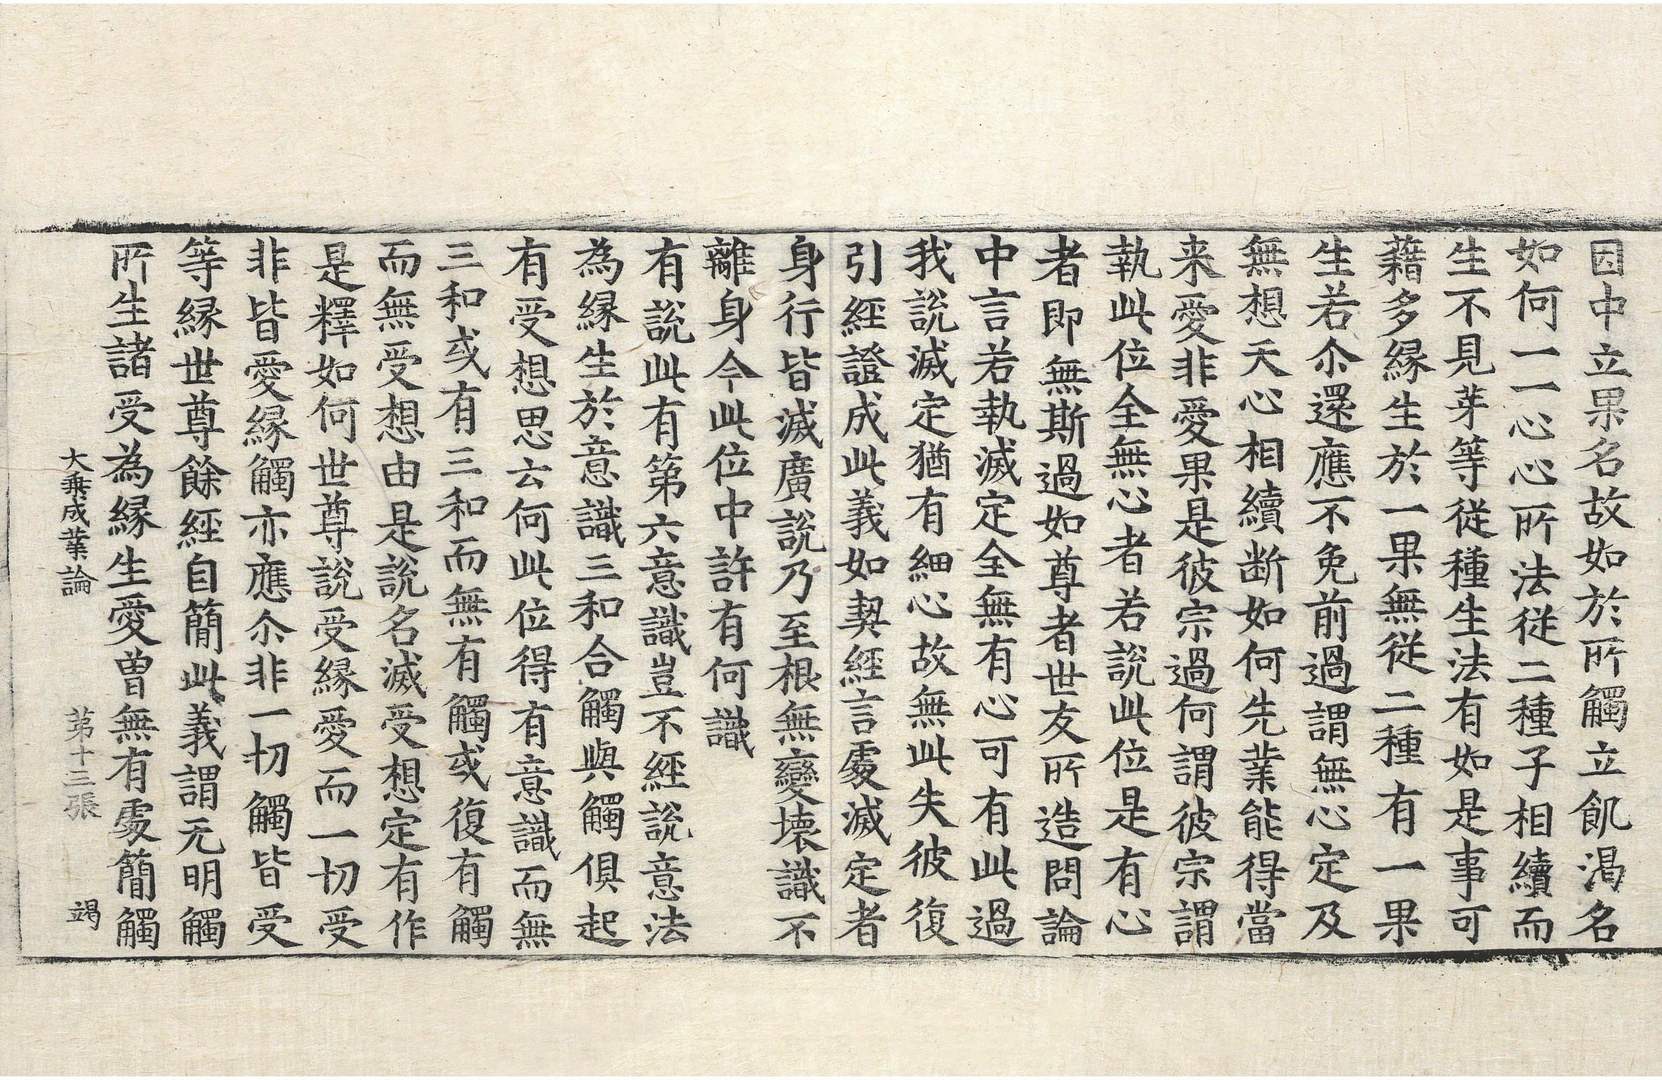 因中立果名故如於所觸立飢渴名
如何一一心心所法從二種子相續而
生不見芽等從種生法有如是事可
藉多緣生於一果無從二種有一果
生若尒還應不免前過謂無心定及
無想天心相續断如何先業能得當
来愛非愛果是彼宗過何謂彼宗謂
執此位全無心者若說此位是有心
者即無斯過如尊者世友所造問論
中言若執滅定全無有心可有此過
我說滅定猶有細心故無此失彼復
引經證成此義如契經言處滅定者
身行皆滅廣說乃至根無變壞識不
離身今此位中許有何識
有說此有第六意識豈不經說意法
為緣生於意識三和合觸與觸俱起
有受想思云何此位得有意識而無
三和或有三和而無有觸或復有觸
而無受想由是說名滅受想定有作
是釋如何世尊說受緣愛而一切受
非皆愛緣觸亦應尒非一切觸皆受
等緣世尊餘經自簡此義謂无明觸
所生諸受為緣生愛曾無有處簡觸
大乘成業論 第十三張 竭